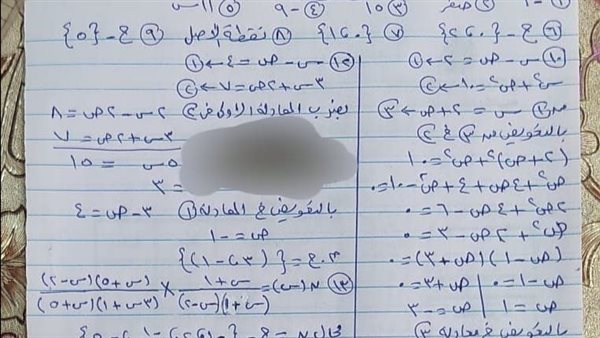 ① ‎−١ ② صفر ③ ١٥ ④ ‎−٩ ⑤ ١١س
⑥ ح − {٢،٠} ⑦ {١،٠} ⑧ نقطة الأصل ⑨ ح − {٥}
⑩ س − ص = ٢ ← ①
س² + ص² = ١٠ ← ②
من ① س = ٢ + ص ③
بالتعويض من ③ في ②
(٢ + ص)² + ص² = ١٠
ص² + ٤ص + ٤ + ص² − ١٠ = ٠
٢ص² + ٤ص − ٦ = ٠
ص² + ٢ص − ٣ = ٠
(ص − ١)(ص + ٣) = ٠
ص − ١ = ٠ | ص + ٣ = ٠
ص = ١ | ص = −٣
بالتعويض في معادلة ③
س − ص = ٤ ← ①
٣س + ٢ص = ٧ ← ②
بضرب المعادلة الأولى في ٢
٢س − ٢ص = ٨
٣س + ٢ص = ٧
٥س = ١٥
= ٣
بالتعويض في المعادلة ① ٣ − ص = ٤
ص = −١
م.ح = {(٣، −١)}
⑬ ن(س) = (س + ١)/((س − ٢)(س + ١)) × ((س + ٥)(س − ٢))/((٣س + ١)(س + ٥))